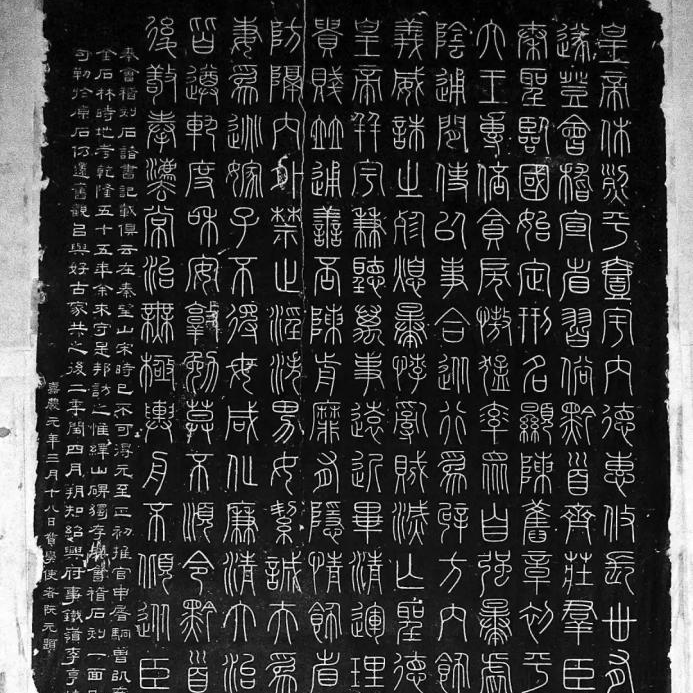 皇帝休烈平壹宇內德惠攸長丗有
遂登會稽宣省習俗黔首齊莊羣臣
秦聖臨國始定刑名顯陳舊章初平
六王專倍貪戾慠猛率眾自強暴虐
陰通閒使以事合從行為辟方內飾
義威誅之殄熄暴悖亂賊滅亡聖德
皇帝并宇兼聽萬事遠近畢清運理
貴賤並通善否陳前靡有隱情飾省
防隔內外禁止淫泆男女絜誠夫為
妻為逃嫁子不得母咸化廉清大治
皆遵軌度和安敦勉莫不順令黔首
後敬奉灋常治無極輿舟不傾從臣
秦會稽刻石諸書記載俱云在秦望山宋時已不可得元至正初推官申屠駉曾以
金石林時地考乾隆五十五年余來守是邦訪之惟繹山碑獨存會稽石刻一面
句勒於原石仍還舊觀以與好古家共之後二年閏四月朔知紹興府事鐵嶺李亨特
嘉慶元年二月十八日督學使者阮元題